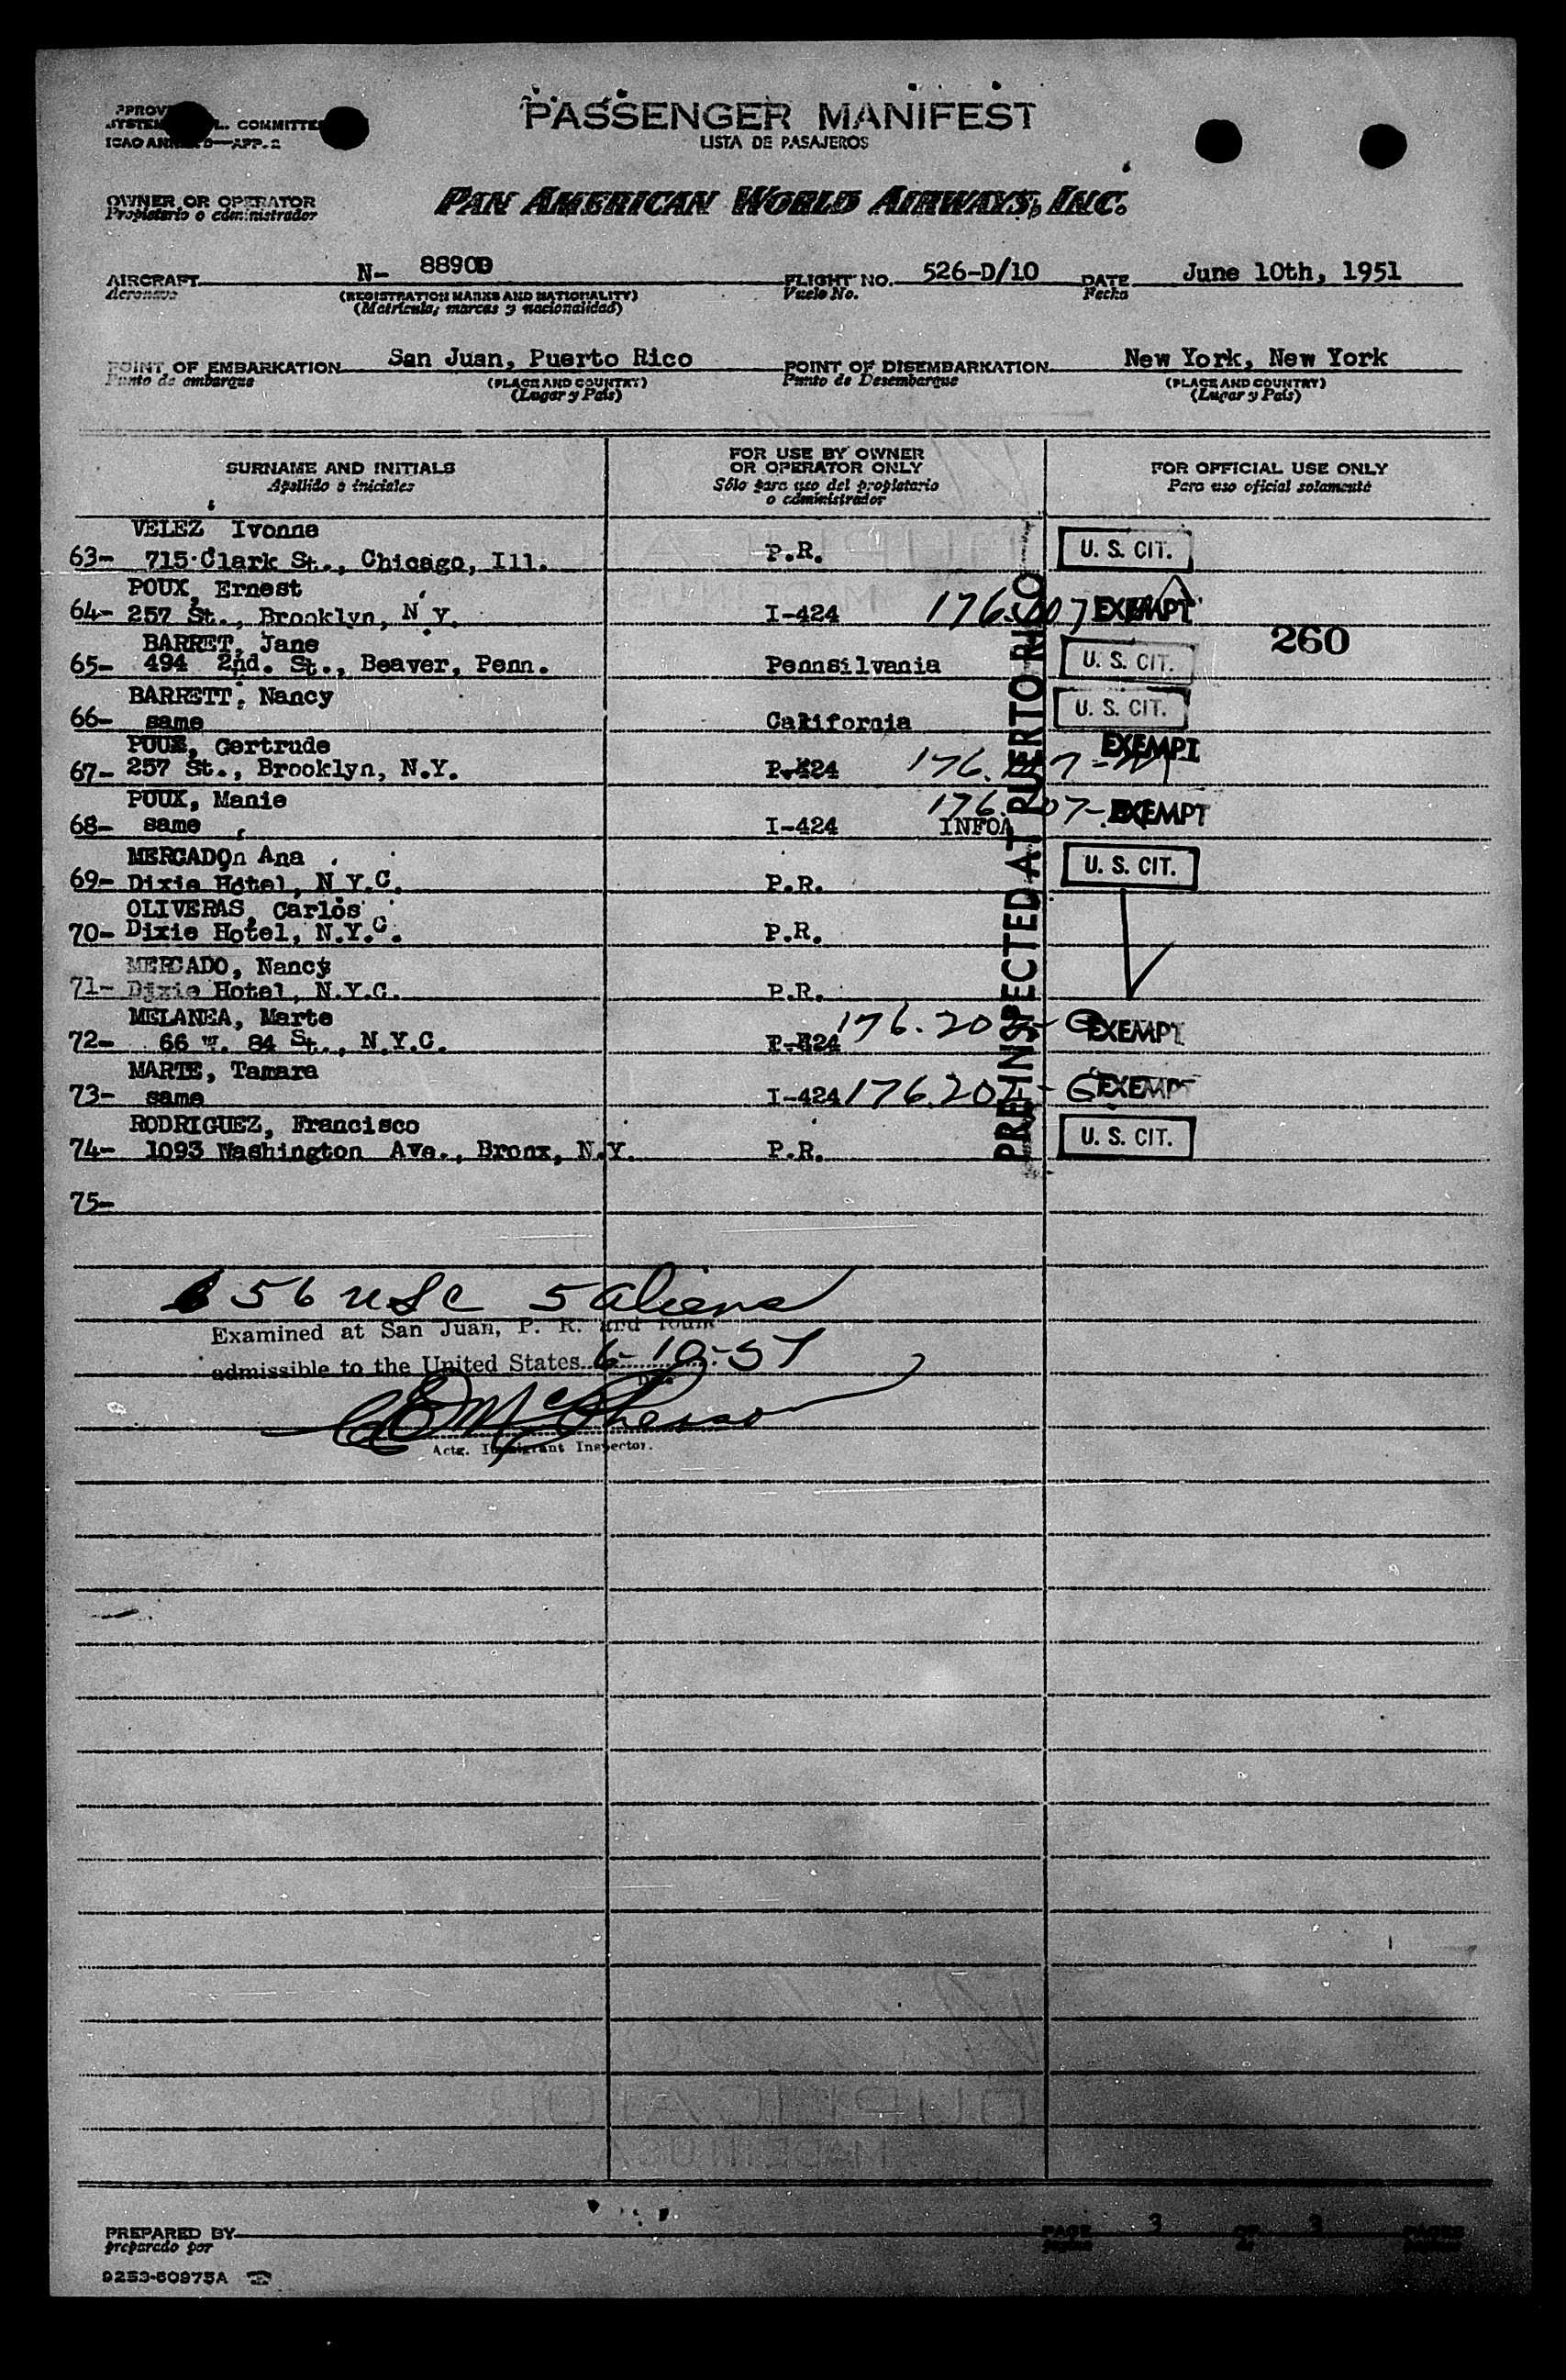 PASSENGER MANIFEST
LISTA DE PASAJEROS
COMMITTEE
ICAO
APP. 2
OWNER OR OPERATOR
Propietario o administrador
PAN AMERICAN WORLD AIRWAYS, INC.
AIRCRAFT N- 8890D FLIGHT NO. 526-D/10 DATE June 10th, 1951
Aeronave (REGISTRATION MARKS AND NATIONALITY) Vuelo No. Fecha
(Matrícula, marcas y nacionalidad)
POINT OF EMBARKATION San Juan, Puerto Rico POINT OF DISEMBARKATION New York, New York
Punto de embarque (PLACE AND COUNTRY) Punto de Desembarque (PLACE AND COUNTRY)
(Lugar y País) (Lugar y País)
SURNAME AND INITIALS
Apellido e iniciales
FOR USE BY OWNER
OR OPERATOR ONLY
Sólo para uso del propietario
o administrador
FOR OFFICIAL USE ONLY
Para uso oficial solamente
VELEZ Ivonne
63- 715 Clark St., Chicago, Ill. P.R. U. S. CIT.
POUX, Ernest
64- 257 St., Brooklyn, N Y. I-424 EXEMPT
260
BARRET, Jane
65- 494 2nd. St., Beaver, Penn. Pennsilvania U. S. CIT.
BARRETT, Nancy
66- same California U. S. CIT.
POUX, Gertrude EXEMPT
67- 257 St., Brooklyn, N.Y.
POUX, Manie
68- same I-424 EXEMPT
MERCADOn Ana
69- Dixie Hotel, N Y.C. P.R. U. S. CIT.
OLIVERAS, Carlos
70- Dixie Hotel, N.Y.C. P.R.
MERCADO, Nancy
71- Dixie Hotel, N.Y.C. P.R.
MELANEA, Marte
72- 66 W. 84 St., N.Y.C. 176.202-G EXEMPT
MARTE, Tamara
73- same I-424 176.202-G EXEMPT
RODRIGUEZ, Francisco
74- 1093 Washington Ave., Bronx, N.Y. P.R. U. S. CIT.
75-
PRE-INSPECTED AT PUERTO RICO
56 USC 5 aliens
Examined at San Juan, P. R. and found
admissible to the United States 6-10-51
Date
McPherson
Actg. Immigrant Inspector.
PREPARED BY PAGE 3 OF 3 PAGES
preparado por
9253-60975A